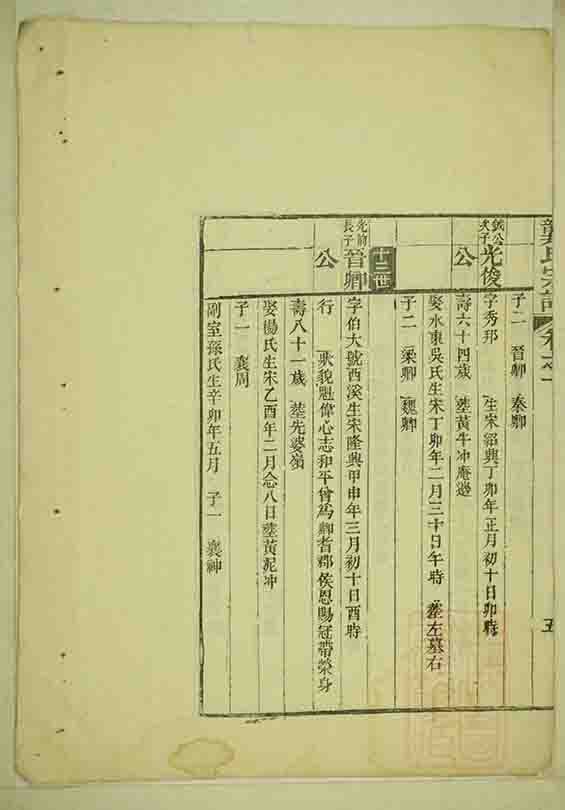 氏宗譜 卷之一 五
子二 晉卿 秦卿
鉞公次子 光俊公
字秀邦 生宋紹興丁卯年正月初十日卯時
壽六十四歲 塟黃牛冲庵邊
娶水東吳氏生宋丁卯年二月三十日午時 塟左墓右
子二 梁卿 魏卿
十三世
光前長子 晉卿公
字伯大號西溪生宋隆興甲申年三月初十日酉時
行 狀貌魁偉心志和平曾為鄉耆郡侯恩賜冠帶榮身
壽八十一歲 塟先婆嶺
娶楊氏生宋乙酉年二月念八日塟黃泥冲
子一 襄周
副室孫氏生辛卯年五月 子一 襄神